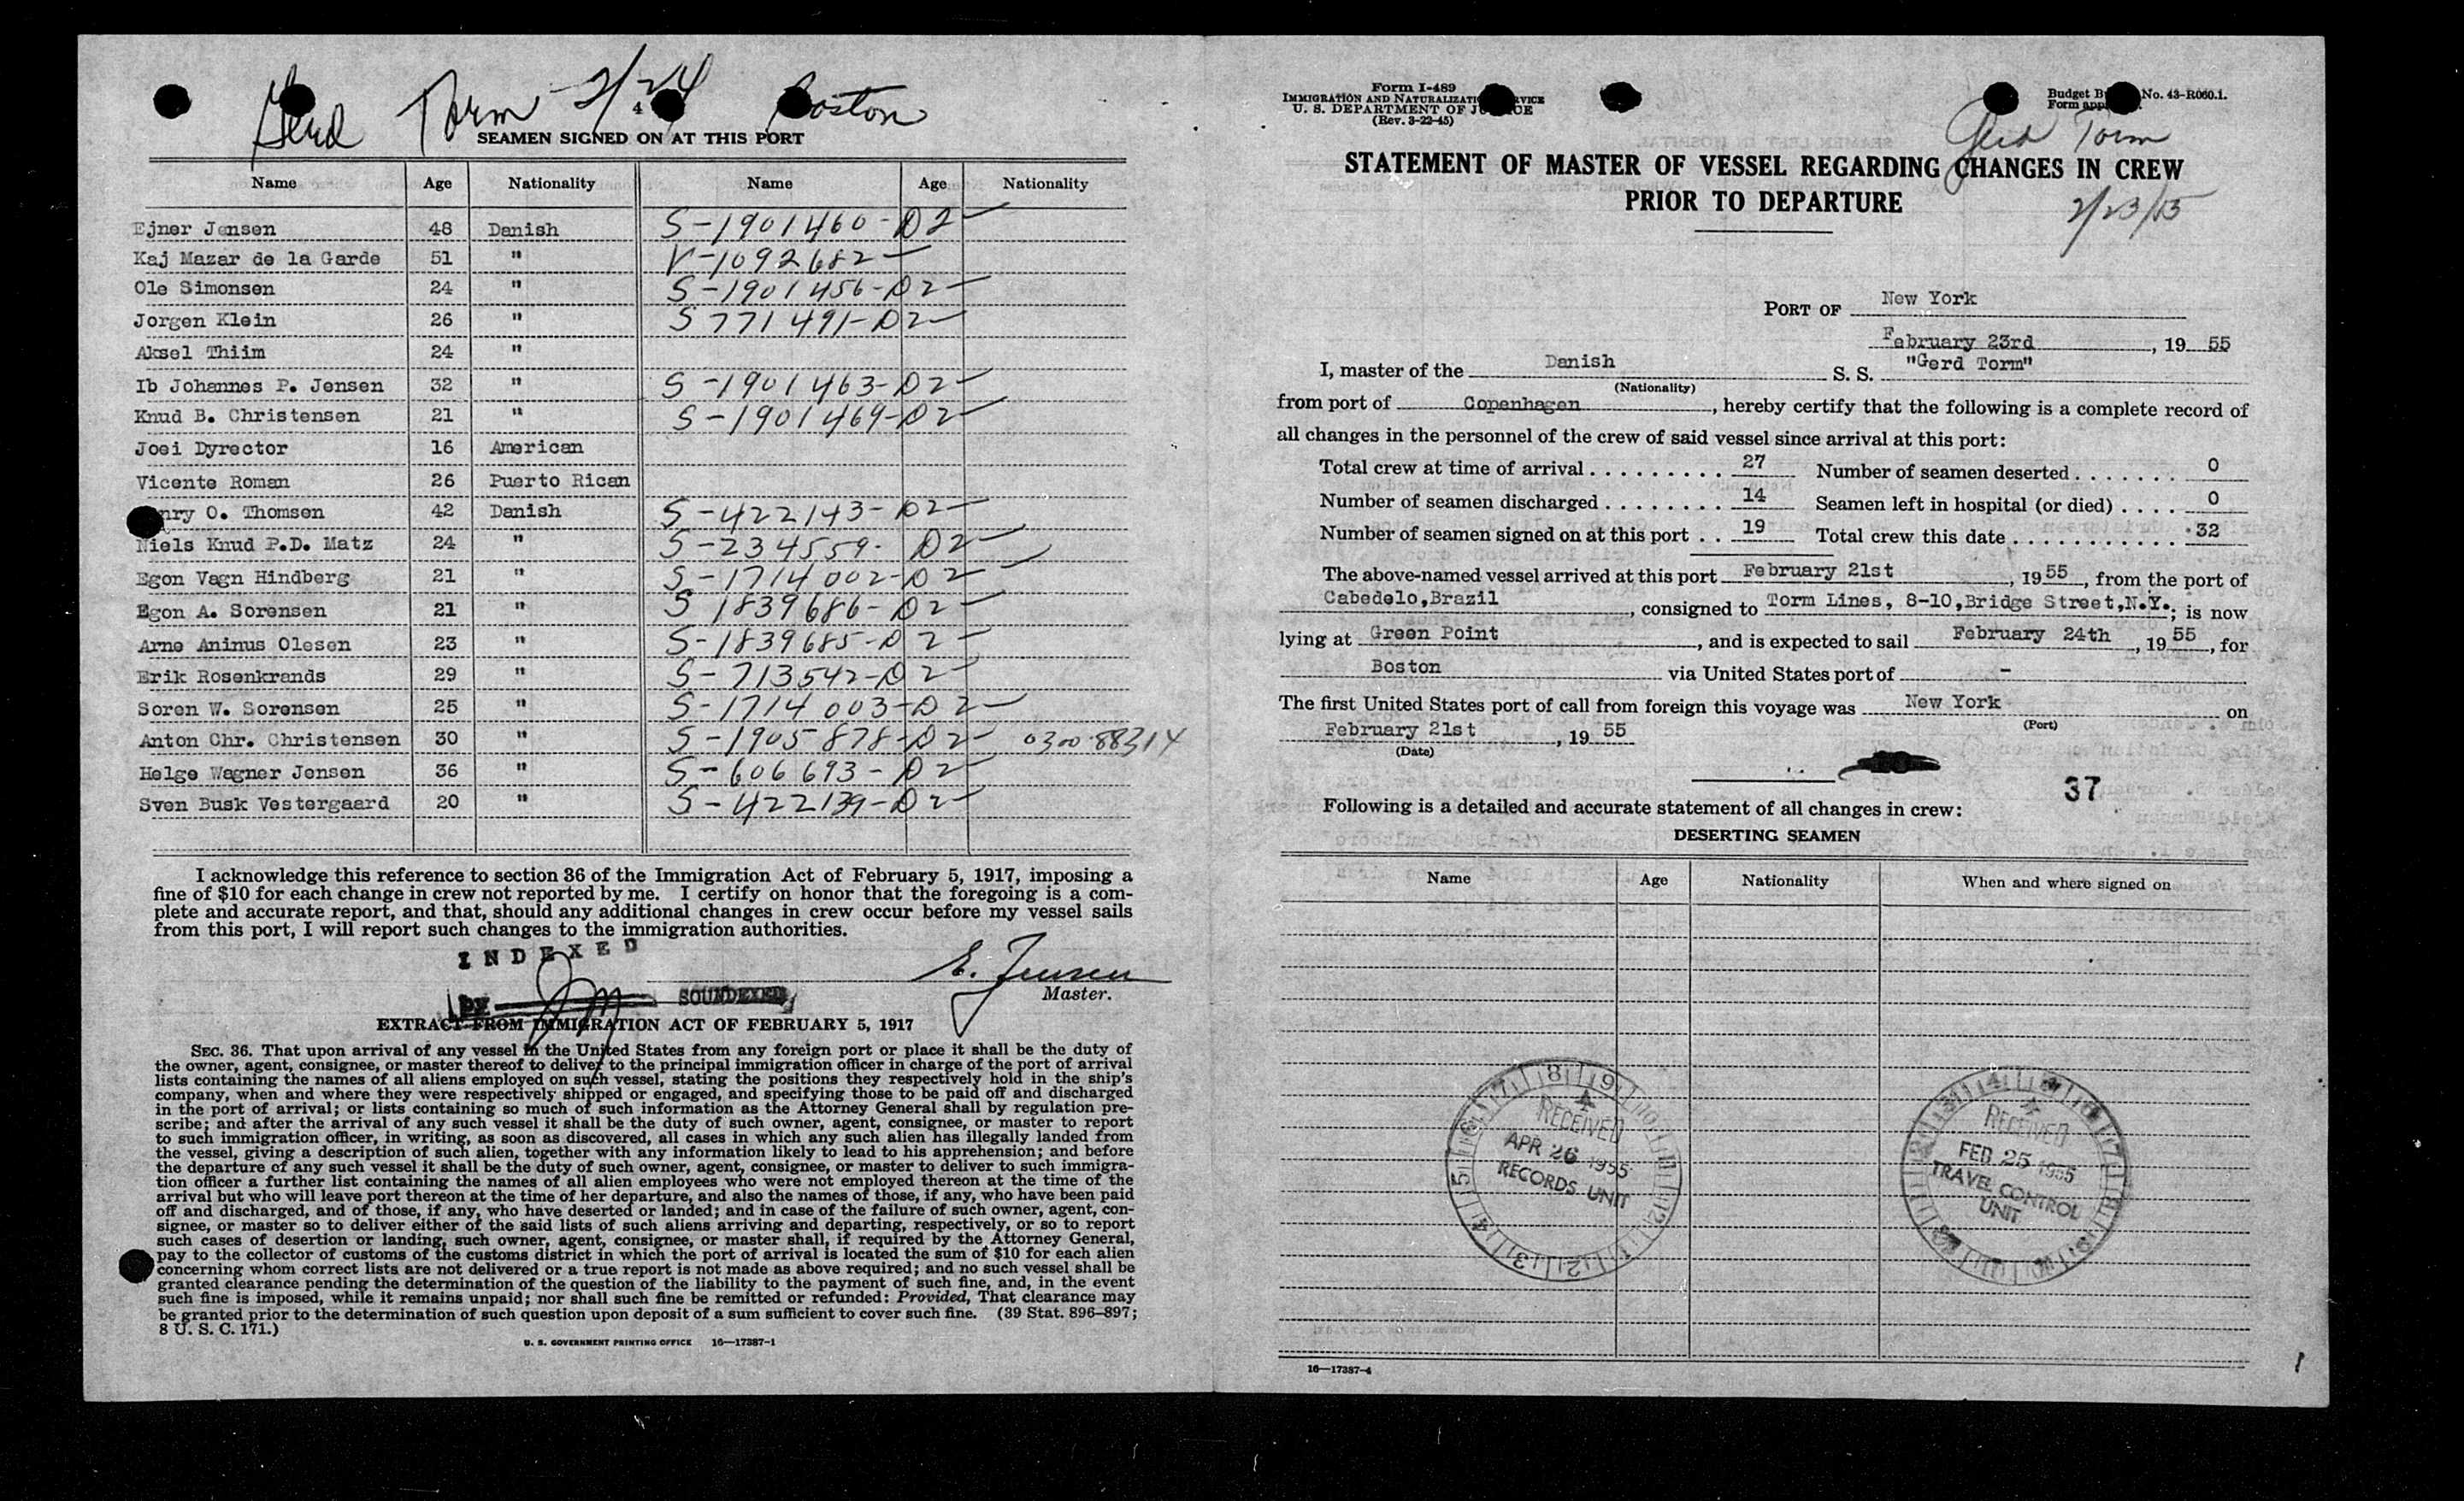 Gerd Torm 2/24 Boston
4
SEAMEN SIGNED ON AT THIS PORT
Name Age Nationality Name Age Nationality
Ejner Jensen 48 Danish S-1901460-D2
Kaj Mazar de la Garde 51 " V-1092682
Ole Simonsen 24 " S-1901456-D2
Jorgen Klein 26 " S 771491-D2
Aksel Thiim 24 "
Ib Johannes P. Jensen 32 " S-1901463-D2
Knud B. Christensen 21 " S-1901469-D2
Joei Dyrector 16 American
Vicente Roman 26 Puerto Rican
nry O. Thomsen 42 Danish S-422143-D2
Niels Knud P.D. Matz 24 " S-234559- D2
Egon Vagn Hindberg 21 " S-1714002-D2
Egon A. Sorensen 21 " S 1839686-D2
Arne Aninus Olesen 23 " S-1839685-D2
Erik Rosenkrands 29 " S-713542-D2
Soren W. Sorensen 25 " S-1714003-D2
Anton Chr. Christensen 30 " S-1905878-D2 0300-88314
Helge Wagner Jensen 36 " S-606693-D2
Sven Busk Vestergaard 20 " S-422139-D2
I acknowledge this reference to section 36 of the Immigration Act of February 5, 1917, imposing a
fine of $10 for each change in crew not reported by me. I certify on honor that the foregoing is a com-
plete and accurate report, and that, should any additional changes in crew occur before my vessel sails
from this port, I will report such changes to the immigration authorities.
INDEXED
E. Jensen
BY SOUNDEXED
Master.
EXTRACT FROM IMMIGRATION ACT OF FEBRUARY 5, 1917
SEC. 36. That upon arrival of any vessel in the United States from any foreign port or place it shall be the duty of
the owner, agent, consignee, or master thereof to deliver to the principal immigration officer in charge of the port of arrival
lists containing the names of all aliens employed on such vessel, stating the positions they respectively hold in the ship's
company, when and where they were respectively shipped or engaged, and specifying those to be paid off and discharged
in the port of arrival; or lists containing so much of such information as the Attorney General shall by regulation pre-
scribe; and after the arrival of any such vessel it shall be the duty of such owner, agent, consignee, or master to report
to such immigration officer, in writing, as soon as discovered, all cases in which any such alien has illegally landed from
the vessel, giving a description of such alien, together with any information likely to lead to his apprehension; and before
the departure of any such vessel it shall be the duty of such owner, agent, consignee, or master to deliver to such immigra-
tion officer a further list containing the names of all alien employees who were not employed thereon at the time of the
arrival but who will leave port thereon at the time of her departure, and also the names of those, if any, who have been paid
off and discharged, and of those, if any, who have deserted or landed; and in case of the failure of such owner, agent, con-
signee, or master so to deliver either of the said lists of such aliens arriving and departing, respectively, or so to report
such cases of desertion or landing, such owner, agent, consignee, or master shall, if required by the Attorney General,
pay to the collector of customs of the customs district in which the port of arrival is located the sum of $10 for each alien
concerning whom correct lists are not delivered or a true report is not made as above required; and no such vessel shall be
granted clearance pending the determination of the question of the liability to the payment of such fine, and, in the event
such fine is imposed, while it remains unpaid; nor shall such fine be remitted or refunded: Provided, That clearance may
be granted prior to the determination of such question upon deposit of a sum sufficient to cover such fine. (39 Stat. 896–897;
8 U. S. C. 171.)
U. S. GOVERNMENT PRINTING OFFICE 16—17387-1
Form I-489
IMMIGRATION AND NATURALIZATI RVICE
U. S. DEPARTMENT OF JUSTICE
(Rev. 3-22-45)
Budget B No. 43-R060.1.
Form app
Gerd Torm
STATEMENT OF MASTER OF VESSEL REGARDING CHANGES IN CREW
PRIOR TO DEPARTURE
2/23/55
PORT OF New York
February 23rd, 19 55
I, master of the Danish S. S. "Gerd Torm"
(Nationality)
from port of Copenhagen, hereby certify that the following is a complete record of
all changes in the personnel of the crew of said vessel since arrival at this port:
Total crew at time of arrival . . . . . . . . . 27 Number of seamen deserted . . . . . . . 0
Number of seamen discharged . . . . . . . . 14 Seamen left in hospital (or died) . . . . 0
Number of seamen signed on at this port . . 19 Total crew this date . . . . . . . . . . . . 32
The above-named vessel arrived at this port February 21st, 19 55, from the port of
Cabedelo,Brazil, consigned to Torm Lines, 8-10,Bridge Street,N.Y.; is now
lying at Green Point, and is expected to sail February 24th, 19 55, for
Boston via United States port of -
The first United States port of call from foreign this voyage was New York on
(Port)
February 21st, 19 55
(Date)
37
Following is a detailed and accurate statement of all changes in crew:
DESERTING SEAMEN
Name Age Nationality When and where signed on
RECEIVED
APR 26 1955
RECORDS UNIT
RECEIVED
FEB 25 1955
TRAVEL CONTROL
UNIT
16—17387-4